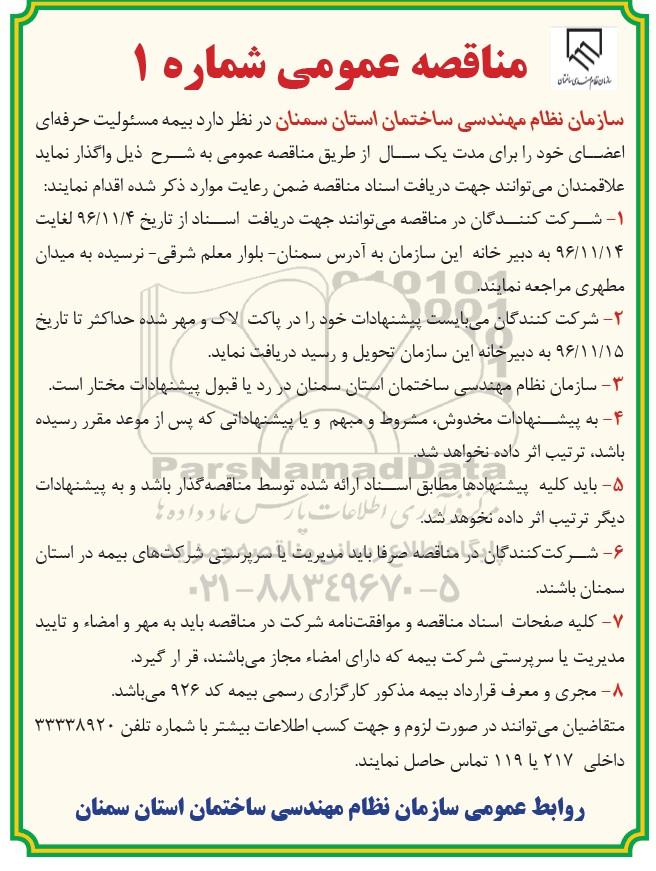 سازمان نظام مهندسی ساختمان
مناقصه عمومی شماره ۱
سازمان نظام مهندسی ساختمان استان سمنان در نظر دارد بیمه مسئولیت حرفه‌ای
اعضای خود را برای مدت یک سال از طریق مناقصه عمومی به شرح ذیل واگذار نماید
علاقمندان می‌توانند جهت دریافت اسناد مناقصه ضمن رعایت موارد ذکر شده اقدام نمایند:
۱- شرکت کنندگان در مناقصه می‌توانند جهت دریافت اسناد از تاریخ ۹۶/۱۱/۴ لغایت
۹۶/۱۱/۱۴ به دبیر خانه این سازمان به آدرس سمنان- بلوار معلم شرقی- نرسیده به میدان
مطهری مراجعه نمایند.
۲- شرکت کنندگان می‌بایست پیشنهادات خود را در پاکت لاک و مهر شده حداکثر تا تاریخ
۹۶/۱۱/۱۵ به دبیرخانه این سازمان تحویل و رسید دریافت نماید.
۳- سازمان نظام مهندسی ساختمان استان سمنان در رد یا قبول پیشنهادات مختار است.
۴- به پیشنهادات مخدوش، مشروط و مبهم و یا پیشنهاداتی که پس از موعد مقرر رسیده
باشد، ترتیب اثر داده نخواهد شد.
ParsNamadData
۵- باید کلیه پیشنهادها مطابق اسناد ارائه شده توسط مناقصه‌گذار باشد و به پیشنهادات
دیگر ترتیب اثر داده نخوهد شد.
مرکز فرآوری اطلاعات پارس نماد داده ها
پایگاه اطلاع رسانی مناقصه و مزایده
۶- شرکت‌کنندگان در مناقصه صرفا باید مدیریت یا سرپرستی شرکت‌های بیمه در استان
سمنان باشند.
۰۲۱-۸۸۳۴۹۶۷۰-۵
۷- کلیه صفحات اسناد مناقصه و موافقت‌نامه شرکت در مناقصه باید به مهر و امضاء و تایید
مدیریت یا سرپرستی شرکت بیمه که دارای امضاء مجاز می‌باشند، قر ار گیرد.
۸- مجری و معرف قرارداد بیمه مذکور کارگزاری رسمی بیمه کد ۹۲۶ می‌باشد.
متقاضیان می‌توانند در صورت لزوم و جهت کسب اطلاعات بیشتر با شماره تلفن ۳۳۳۳۸۹۲۰
داخلی ۲۱۷ یا ۱۱۹ تماس حاصل نمایند.
روابط عمومی سازمان نظام مهندسی ساختمان استان سمنان